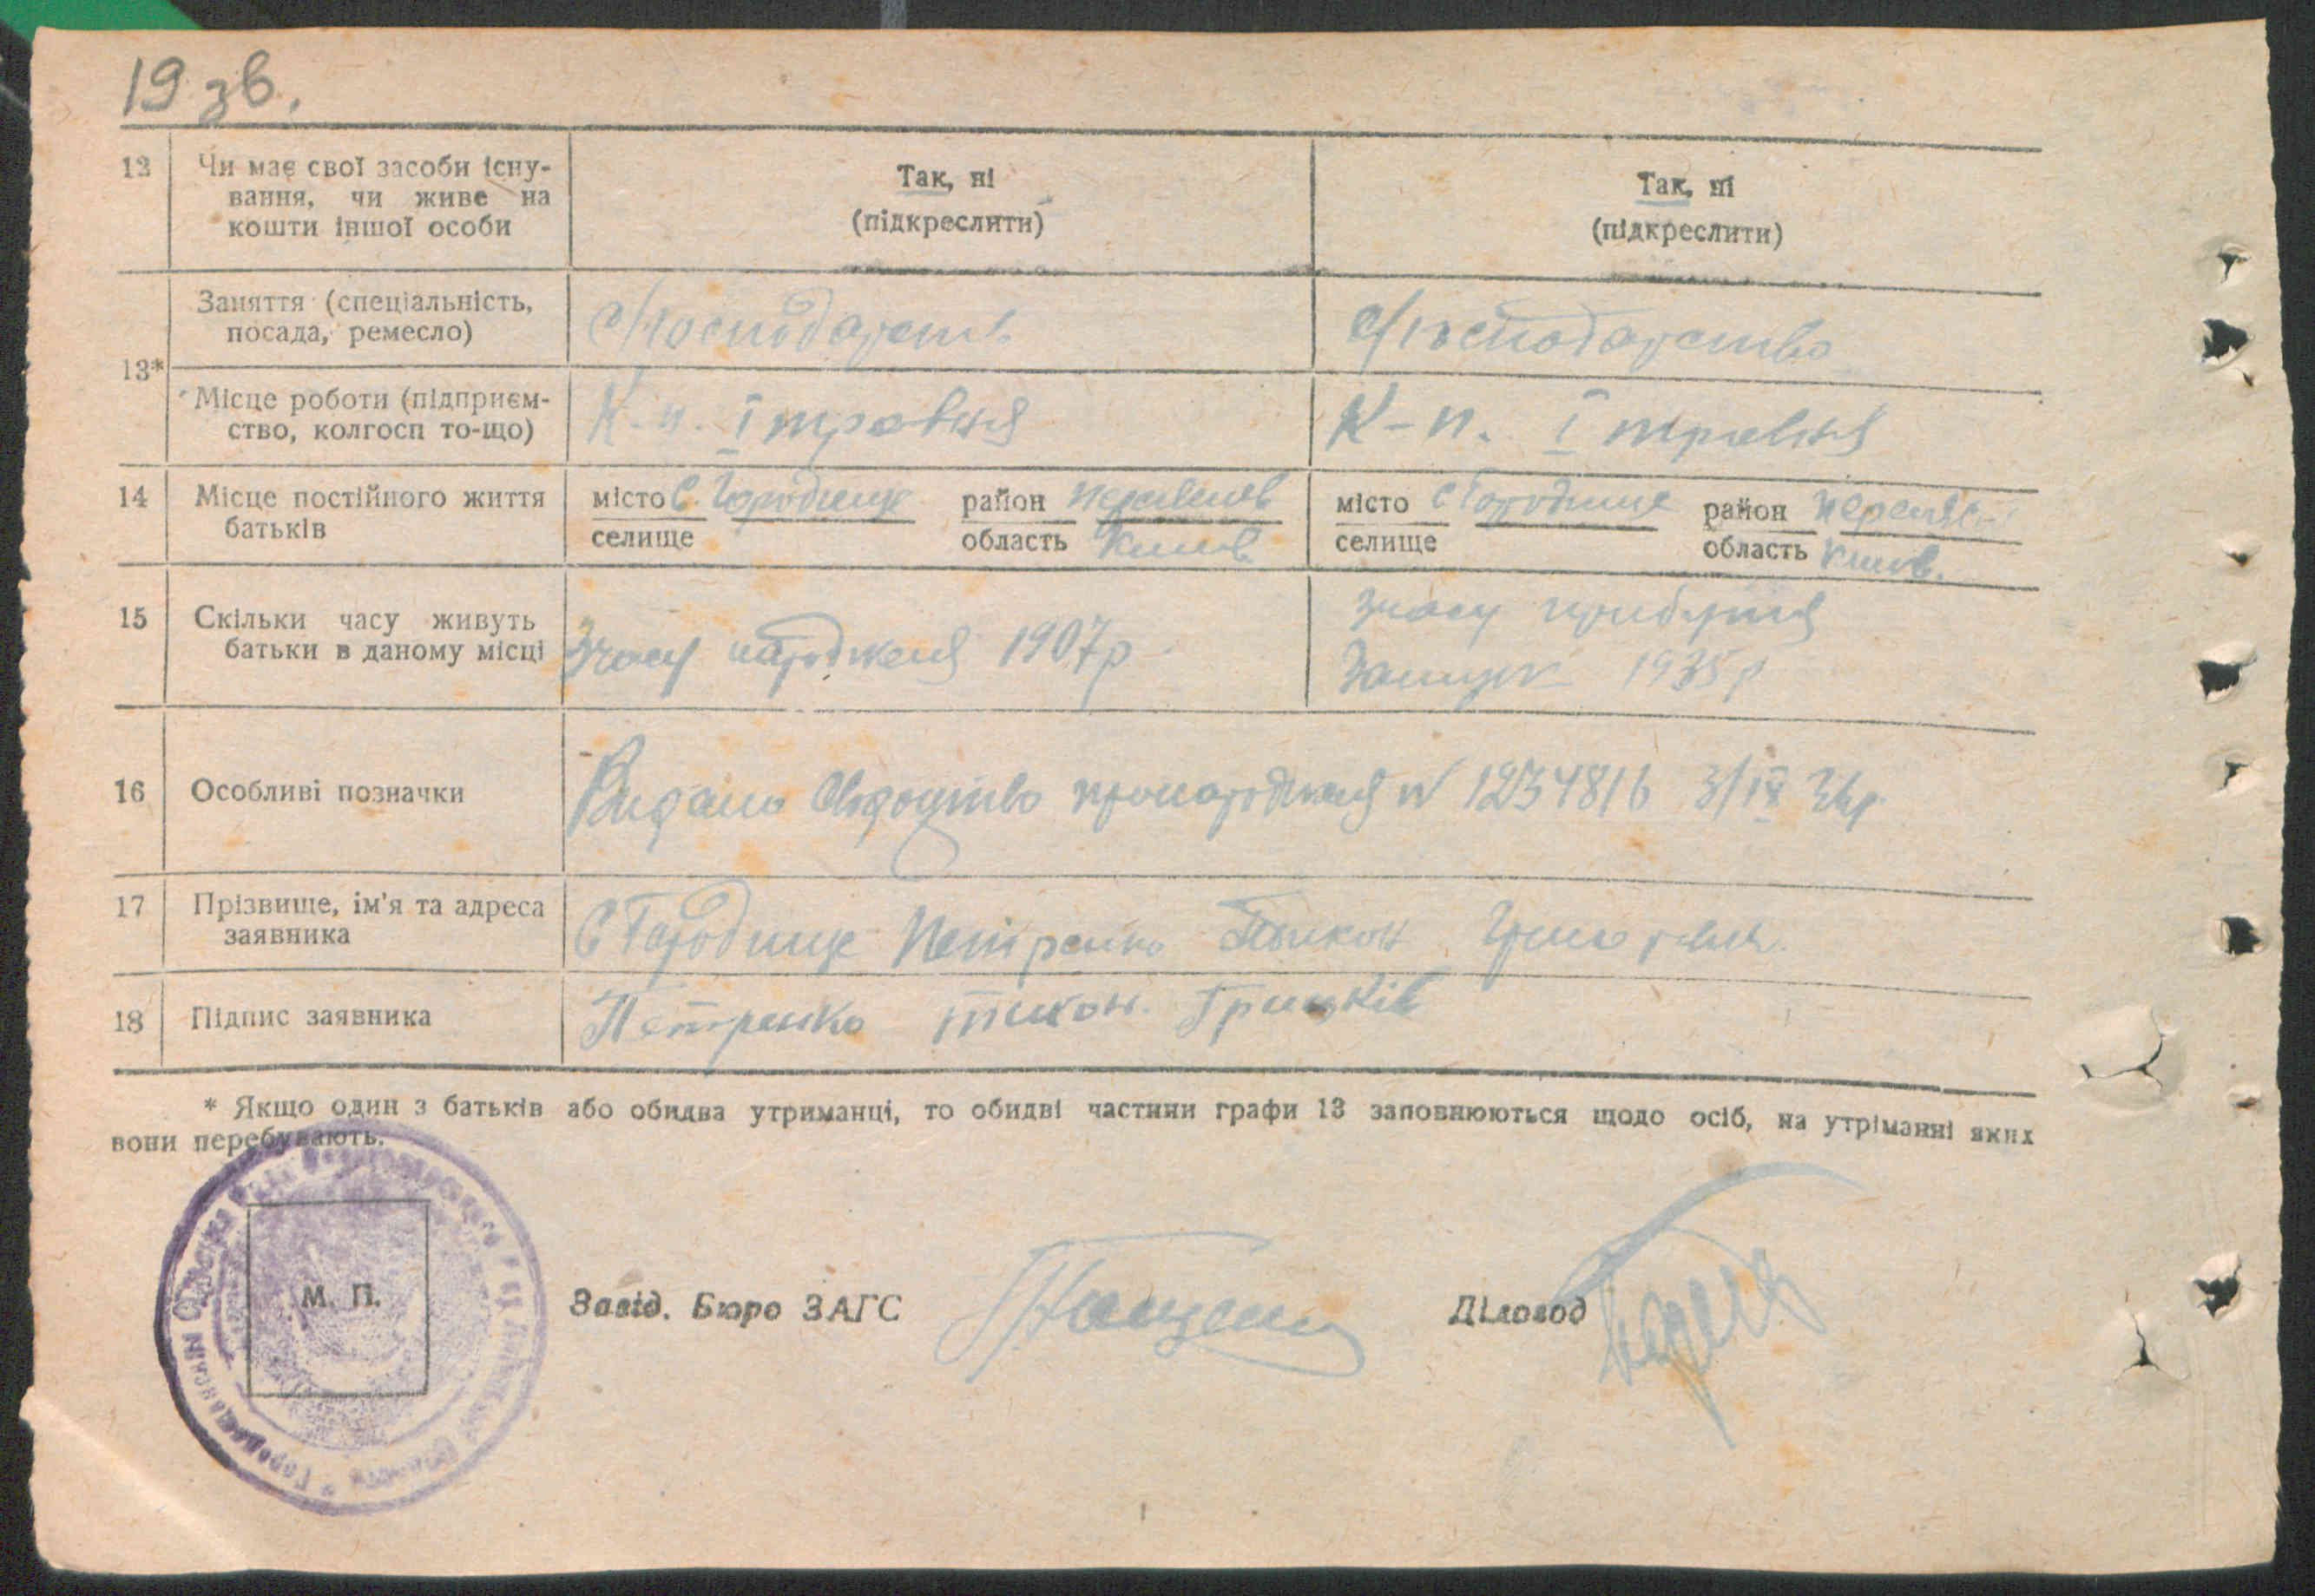 19 зв.
12 Чи має свої засоби існу-
вання, чи живе на
кошти іншої особи
Так, ні
(підкреслити)
Так, ні
(підкреслити)
13*
Заняття (спеціальність,
посада, ремесло)
с/господарств
с/господарство
Місце роботи (підприєм-
ство, колгосп то-що)
К-п. І травня
К-п. І травня
14 Місце постійного життя
батьків
місто с. Городище район
селище область Києв.
місто с Городище район
селище область Києв.
15 Скільки часу живуть
батьки в даному місці
Зчасу народженя 1907р
зчасу прибутя
Замуж 1935р
16 Особливі позначки
Видано свідоцтво пронародженя № 1234816 3/ІХ 36р
17 Прізвище, ім'я та адреса
заявника
С Городище Петренко Тихон
18 Підпис заявника
Петренко тихон. Грицків
* Якщо один з батьків або обидва утриманці, то обидві частини графи 13 заповнюються щодо осіб, на утріманні яких
вони перебувають.
М. П.
Завід. Бюро ЗАГС
Діловод